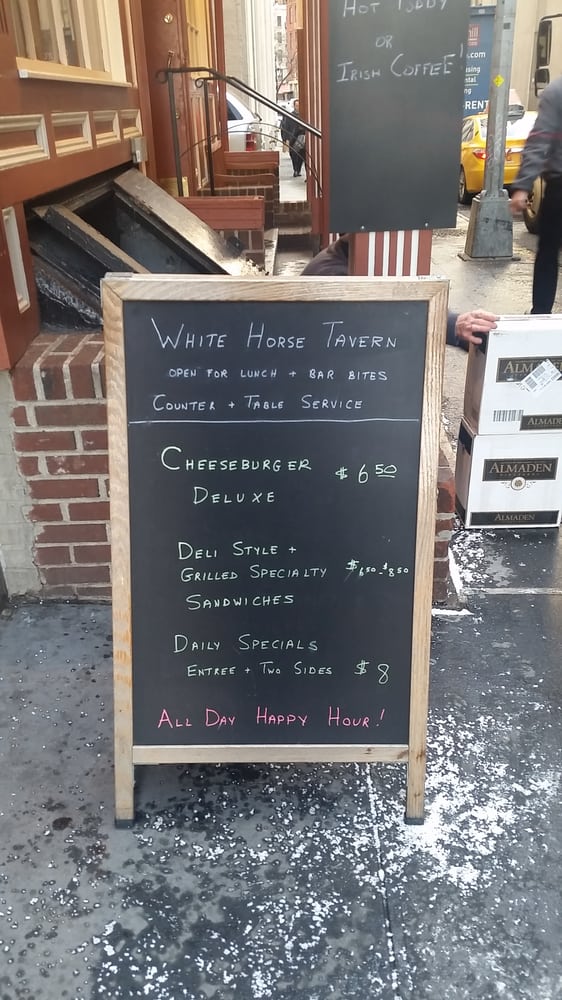 HOT TODDY
OR
IRISH COFFEE!
.com
RENT
WHITE HORSE TAVERN
OPEN FOR LUNCH + BAR BITES
COUNTER + TABLE SERVICE
CHEESEBURGER $6.50
DELUXE
DELI STYLE +
GRILLED SPECIALTY $6.50-$8.50
SANDWICHES
DAILY SPECIALS
ENTREE + TWO SIDES $8
ALL DAY HAPPY HOUR!
ALM
ALMADEN
ALMADEN
ALMADEN